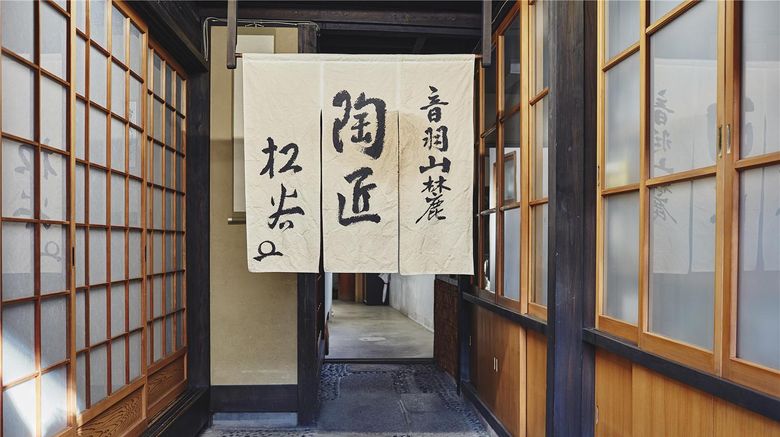 音羽山麓
陶匠
松